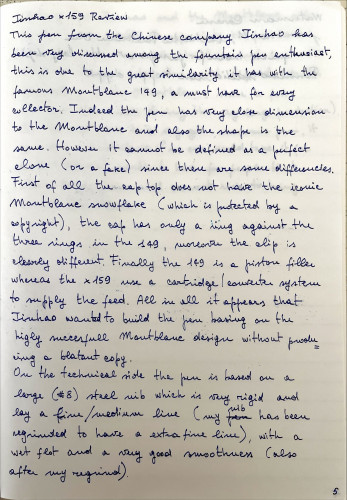 Jinhao x159 Review
This pen from the Chinese company Jinhao has
been very discussed among the fountain pen enthusiast,
this is due to the great similarity it has with the
famous Montblanc 149, a must have for every
collector. Indeed the pen has very close dimension
to the Montblanc and also the shape is the
same. However it cannot be defined as a perfect
clone (or a fake) since there are some differencies.
First of all the cap top does not have the iconic
Montblanc snowflake (which is protected by a
copyright), the cap has only a ring against the
three rings in the 149, moreover the clip is
clearly different. Finally the 149 is a piston filler
whereas the x159 use a cartridge/converter system
to supply the feed. All in all it appears that
Jinhao wanted to build the pen basing on the
higly succesfull Montblanc design without produ=
cing a blatant copy.
On the technical side the pen is based on a
large (#8) steel nib which is very rigid and
lay a fine/medium line (my nib has been
regrinded to have a extrafine line), with a
wet flot and a very good smoothness (also
after my regrind).
5